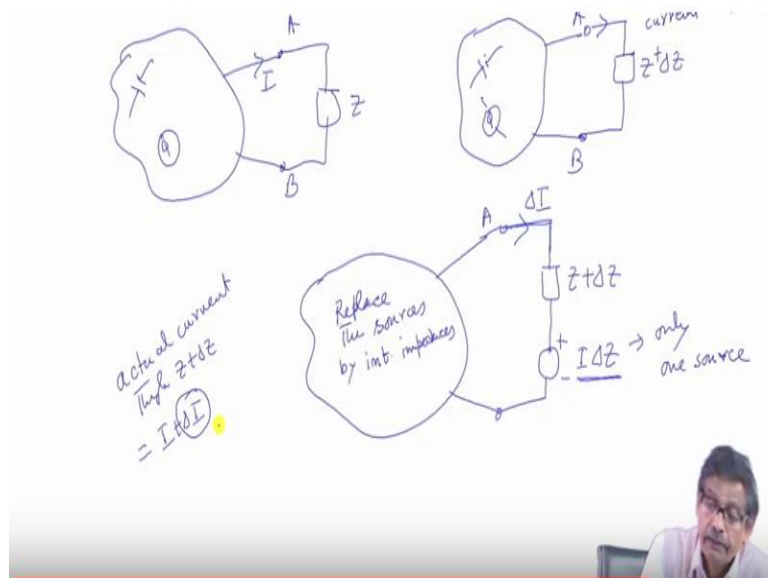 A
I
Z
B
A
current
Z+ΔZ
B
A
ΔI
Replace
The sources
by int. impedances
Z+ΔZ
+
- IΔZ → only
one source
actual current
Thro Z+ΔZ
= I+ΔI